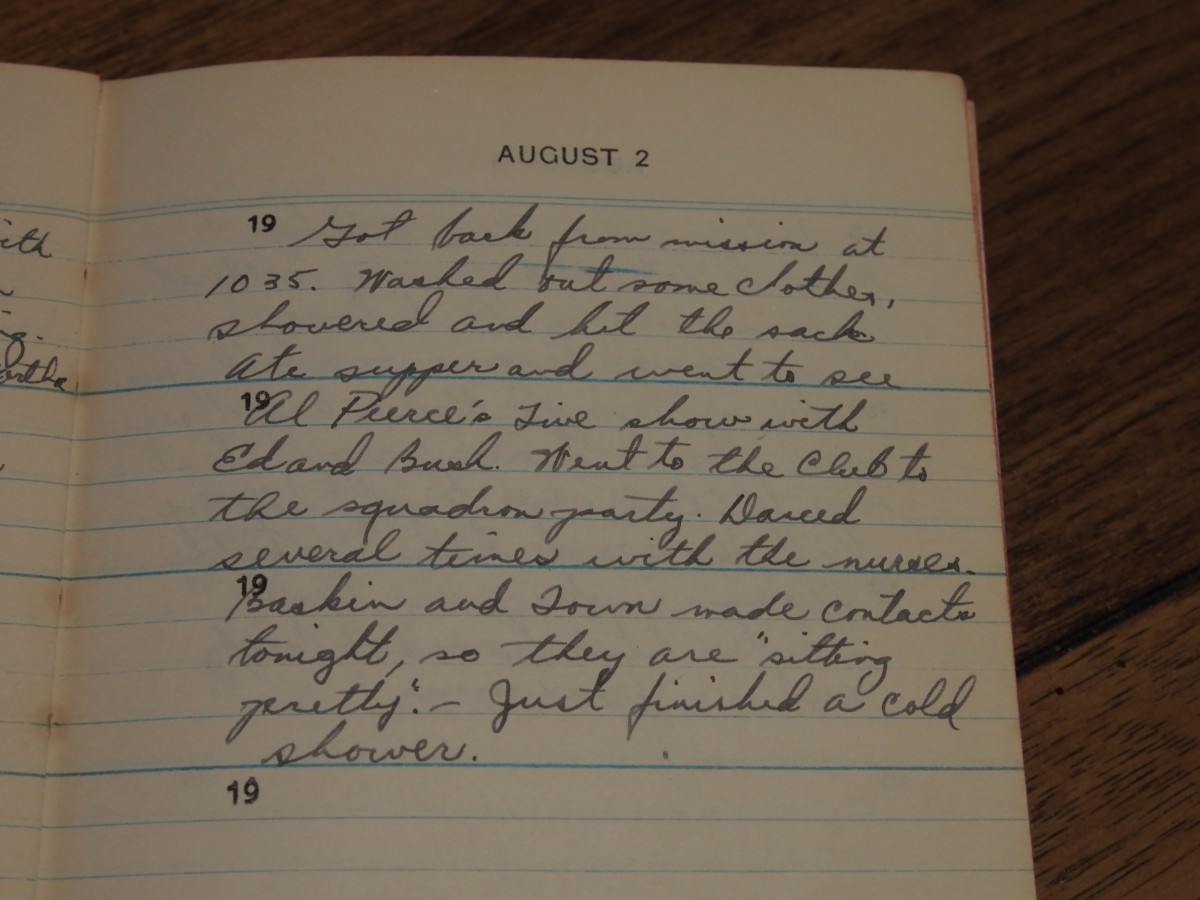 AUGUST 2
ith
19 Got back from mission at
1035. Washed out some clothes,
showered and hit the sack
g.
artha
Ate supper and went to see
19 Al Pierce's Live show with
Ed and Bush. Went to the Club to
the squadron party. Danced
several times with the nurses.
19 Baskin and Town made contacts
tonight, so they are "sitting
pretty". - Just finished a cold
shower.
19